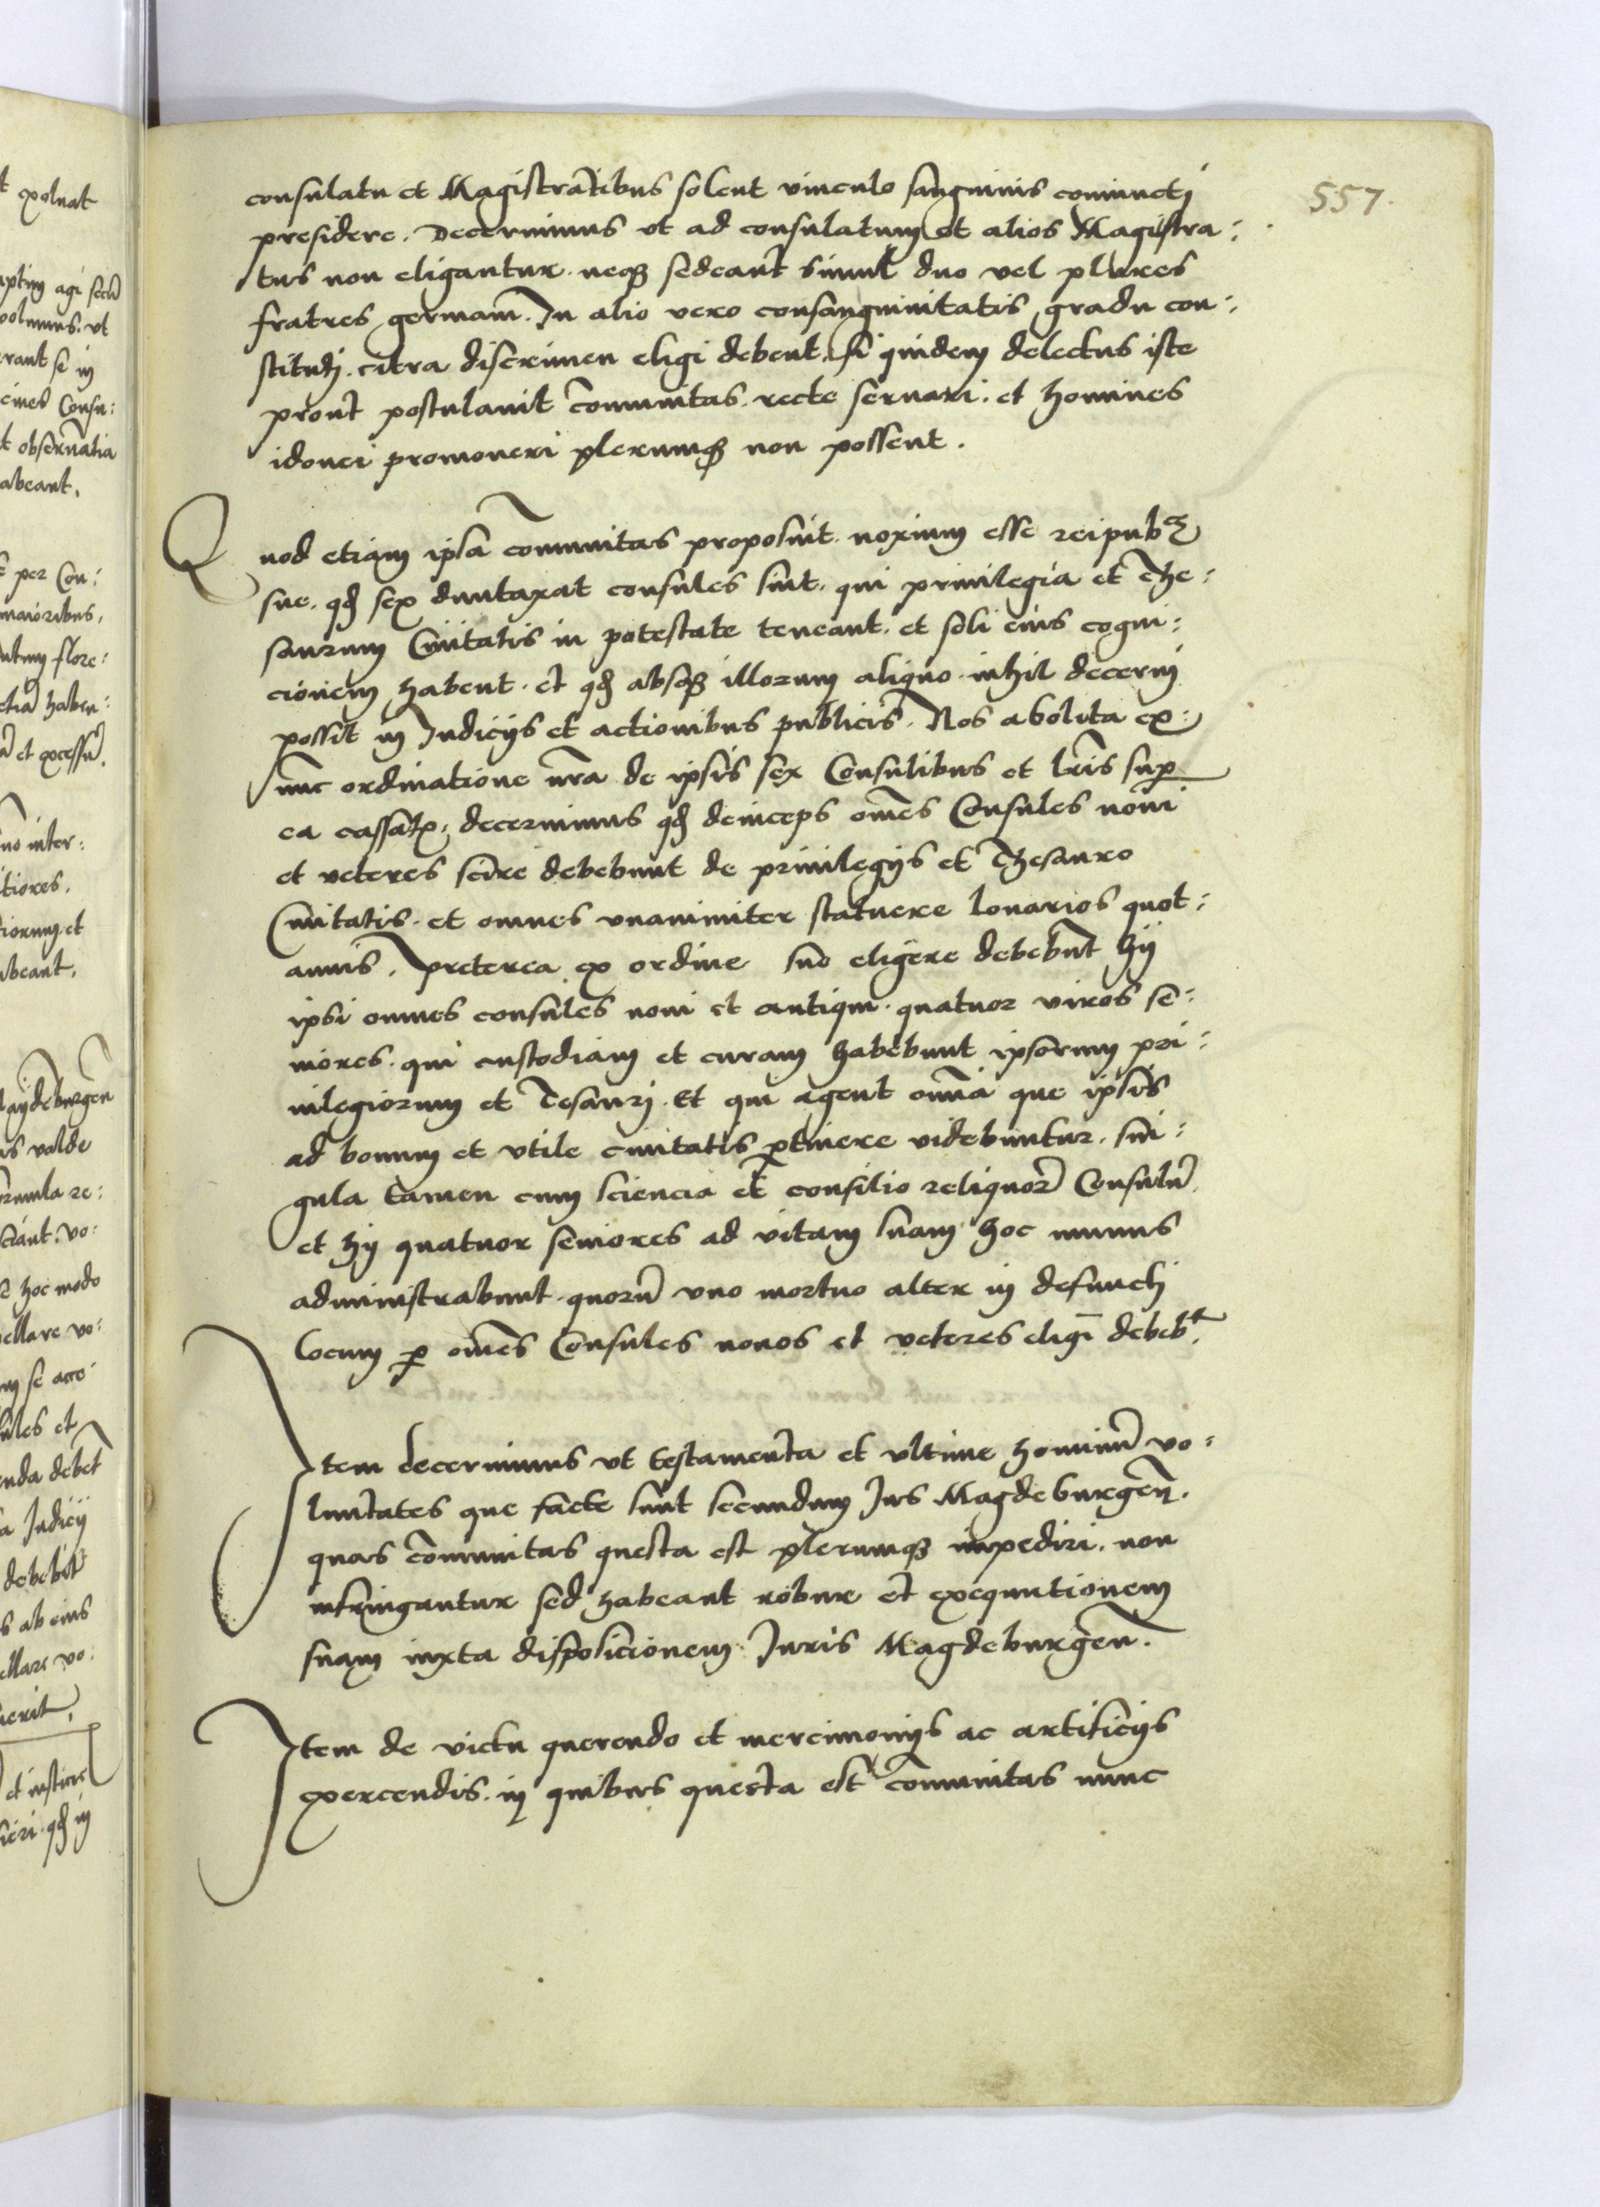 557.
consulatu et Magistratibus solent vinculo sanguinis coniuncti
presidere. Decernimus vt ad consulatum et alios Magistra:
tus non eligantur. neqȝ sedeant simul duo vel plures
fratres germani. In alio vero consanguinitatis gradu con:
stituti. citra discrimen eligi debent. si quidem delectus iste
prout postulauit cōmunitas. recte seruari. et homines
idonei promoueri plerumqȝ non possent.
Quod etiam ipsa cōmunitas proposuit. noxium esse reipubce
sue. qd sex duntaxat consules sint. qui priuilegia et The:
saurum Ciuitatis in potestate teneant. et soli eius cogni:
cionem habent. et qd absqȝ illorum aliquo nihil decerni
possit in Judicijs et actionibus publicis. Nos abolita ex:
nunc ordinatione nr̄a de ipsis sex Consulibus et lr̄is sup
ea cassatis, decernimus qd deinceps om̄es Consules noui
et veteres scire debebunt de priuilegijs et Thesauro
Ciuitatis. et omnes vnanimiter statuere lonarios quot:
annis. Preterea ex ordine suo eligere debebunt hij
ipsi omnes consules noui et antiqui. quatuor viros se:
niores. qui custodiam et curam habebunt ipsorum pri:
uilegiorum et Tesauri. Et qui agent om̄ia que ipsis
ad bonum et vtile ciuitatis ptinere videbuntur. sin:
gula tamen cum sciencia et consilio reliquor̄ Consulū.
et hij quatuor seniores ad vitam suam hoc munus
administrabunt. quorū vno mortuo alter in defuncti
locum p om̄es Consules nouos et veteres eligi debebt.
Item decernimus vt testamenta et vltime hominū vo:
luntates que facte sunt secundum Jus Magdeburgen̄.
quas cōmunitas questa est plerumqȝ impediri. non
infringantur sed habeant robur et exequutionem
suam iuxta disposicionem Juris Magdeburgen̄.
Item de victu querendo et mercimonijs ac artificijs
exercendis. in quibus questa est cōmunitas nunc